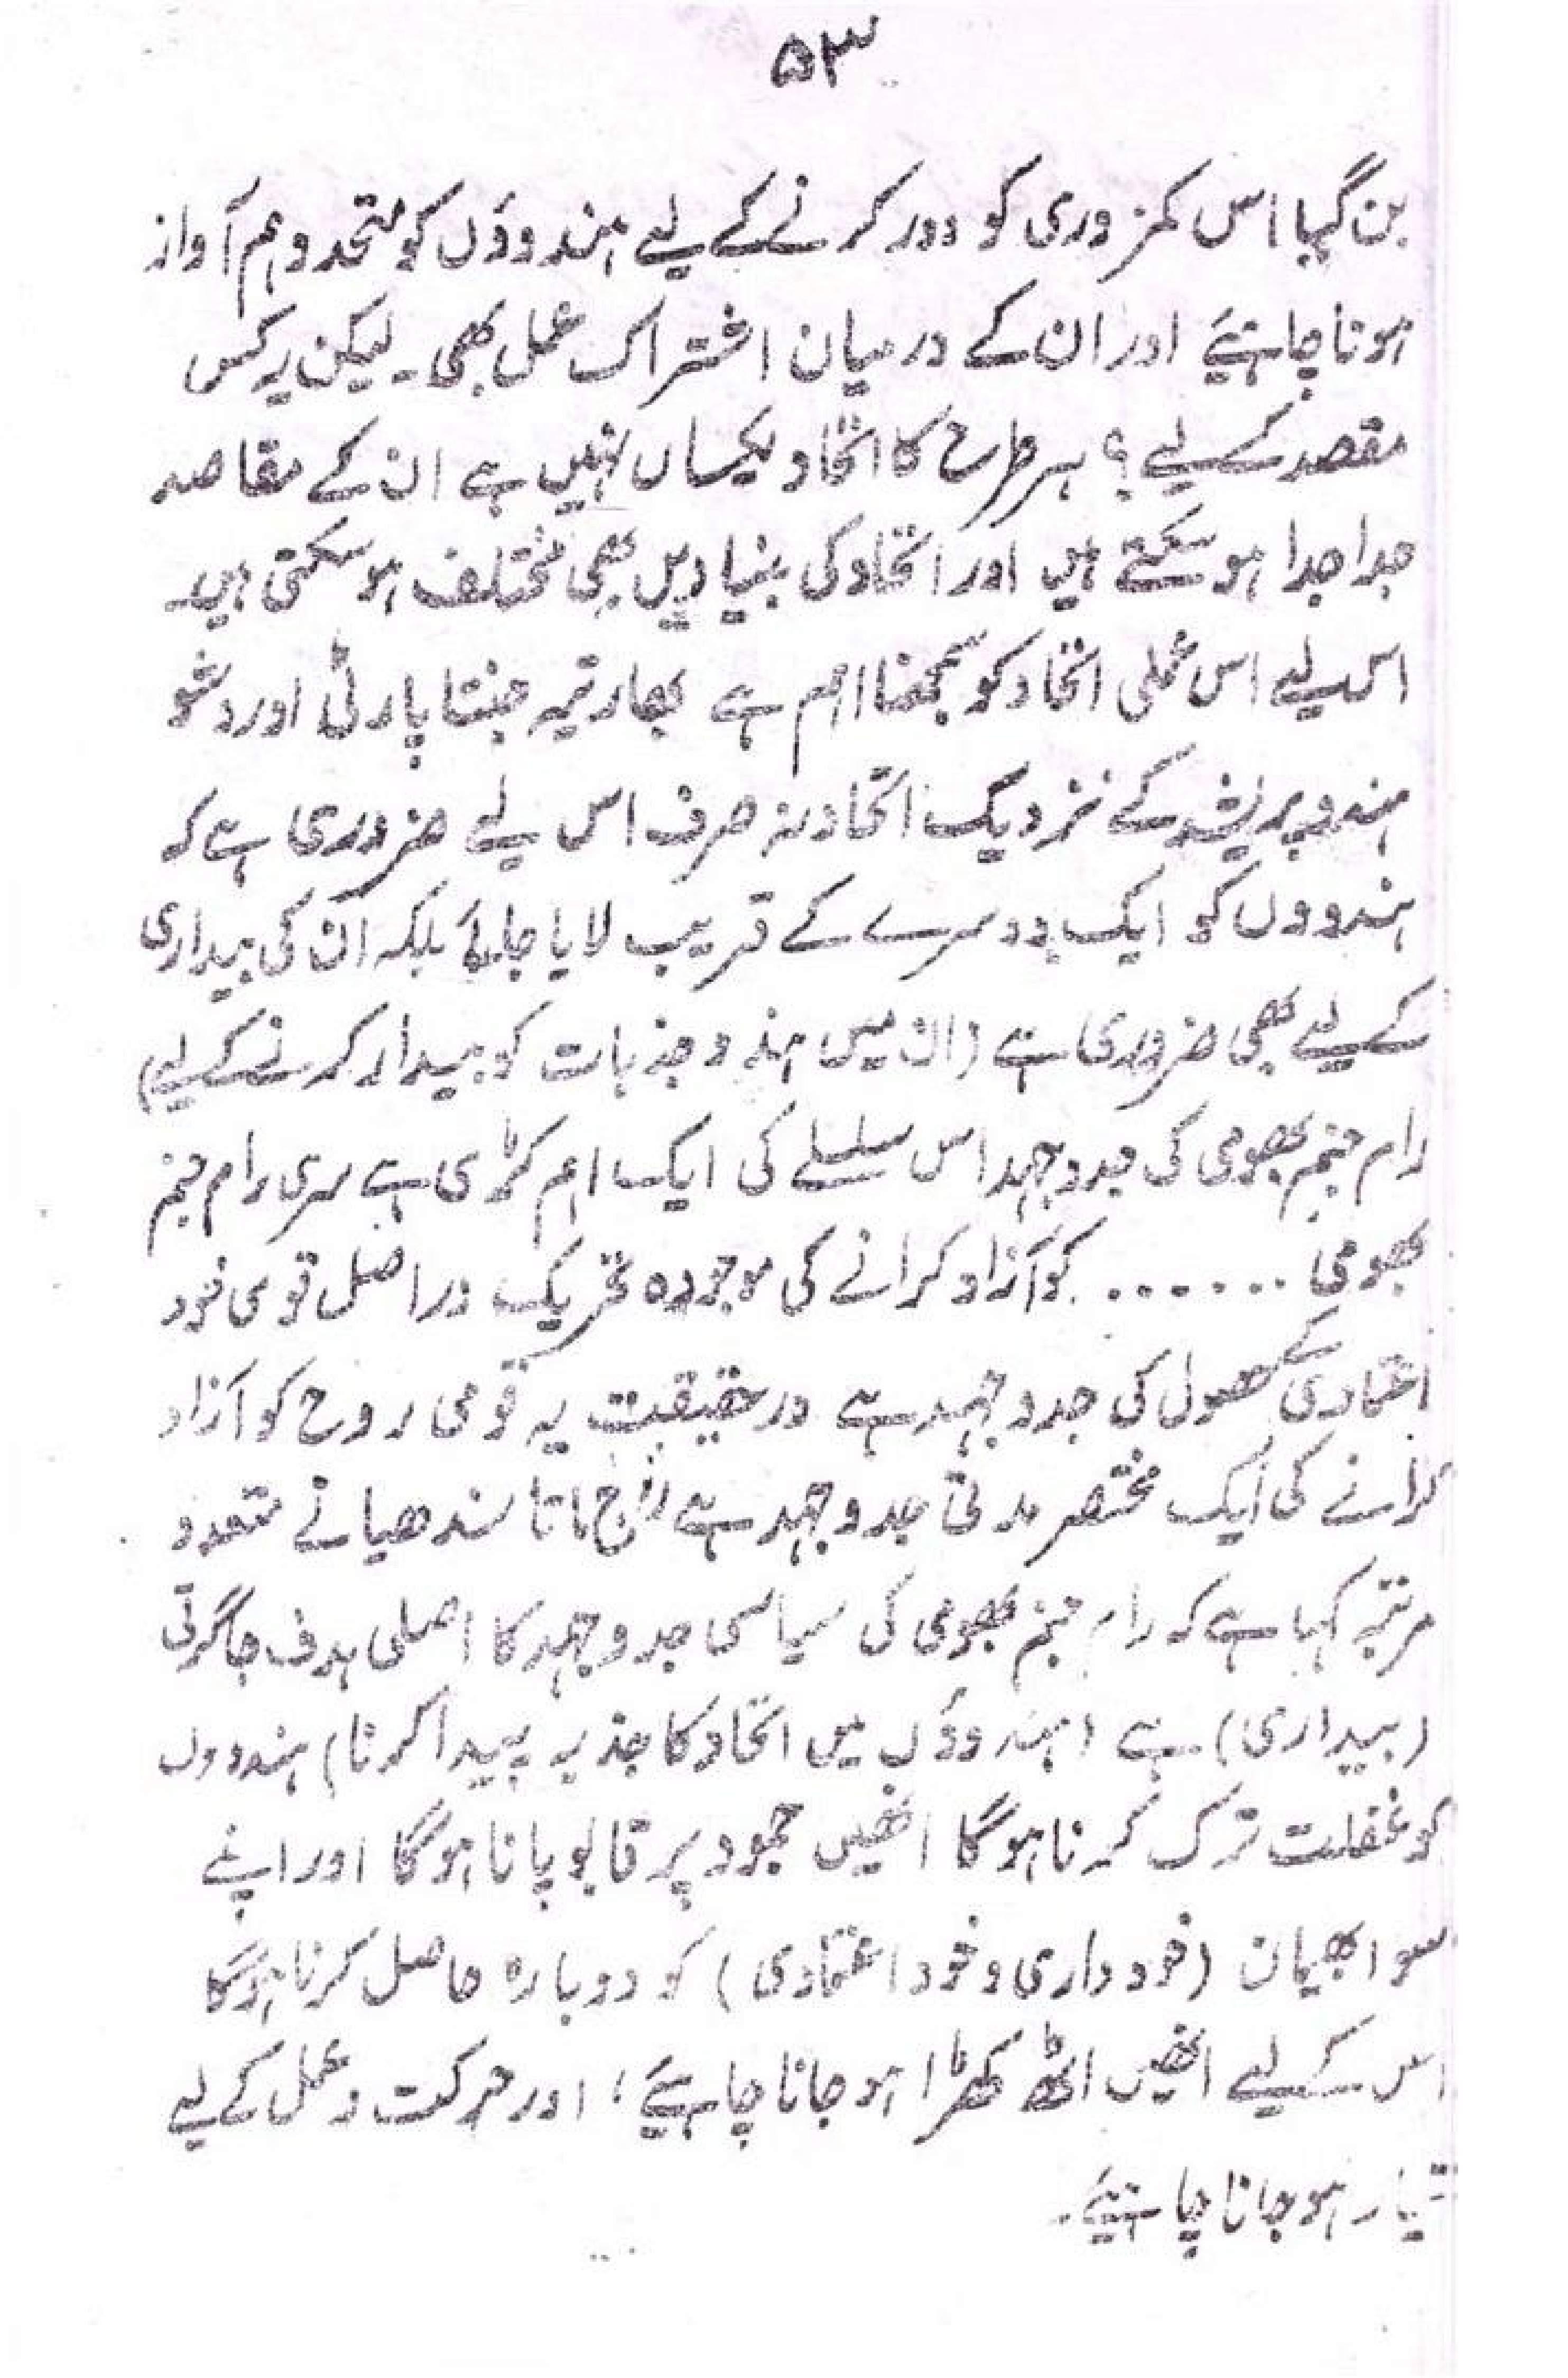 ۵۳
بن گیا اس کمزوری کو دور کرنے کے لیے ہندوؤں کو متحد و ہم آواز
ہونا چاہیے اور ان کے درمیان اشتراک عمل بھی۔ لیکن یہ کس
مقصد کے لیے؟ ہر طرح کا اتحاد یکساں نہیں ہے ان کے مقاصد
جدا جدا ہو سکتے ہیں اور اتحاد کی بنیادیں بھی مختلف ہو سکتی ہیں۔
اس لیے اس عملی اتحاد کو سمجھنا اہم ہے بھارتیہ جنتا پارٹی اور وشو
ہندو پریشد کے نزدیک اتحاد نہ صرف اس لیے ضروری ہے کہ
ہندووں کو ایک دوسرے کے قریب لایا جائے بلکہ ان کی بیداری
کے لیے بھی ضروری ہے (ان میں ہندو جذبات کو بیدار کرنے کے لیے)
رام جنم بھومی کی جدوجہد اس سلسلے کی ایک اہم کڑی ہے سری رام جنم
بھومی ....... کو آزاد کرانے کی موجودہ تحریک دراصل قومی خود
اعتمادی کے حصول کی جدوجہد ہے درحقیقت یہ قومی روح کو آزاد
کرانے کی ایک مختصر مدتی جدوجہد ہے راج ماتا سندھیا نے متعدد
مرتبہ کہا ہے کہ رام جنم بھومی کی سیاسی جدوجہد کا اصلی ہدف جاگرتی
(بیداری) ہے (ہندوؤں میں اتحاد کا جذبہ پیدا کرنا) ہندووں
کو غفلت ترک کرنا ہوگا انھیں جمود پر قابو پانا ہوگا اور اپنے
سوابھیمان (خودداری و خود اعتمادی) کو دوبارہ حاصل کرنا ہوگا
اس کے لیے انھیں اٹھ کھڑا ہو جانا چاہیے، اور حرکت و عمل کے لیے
تیار ہو جانا چاہیے۔